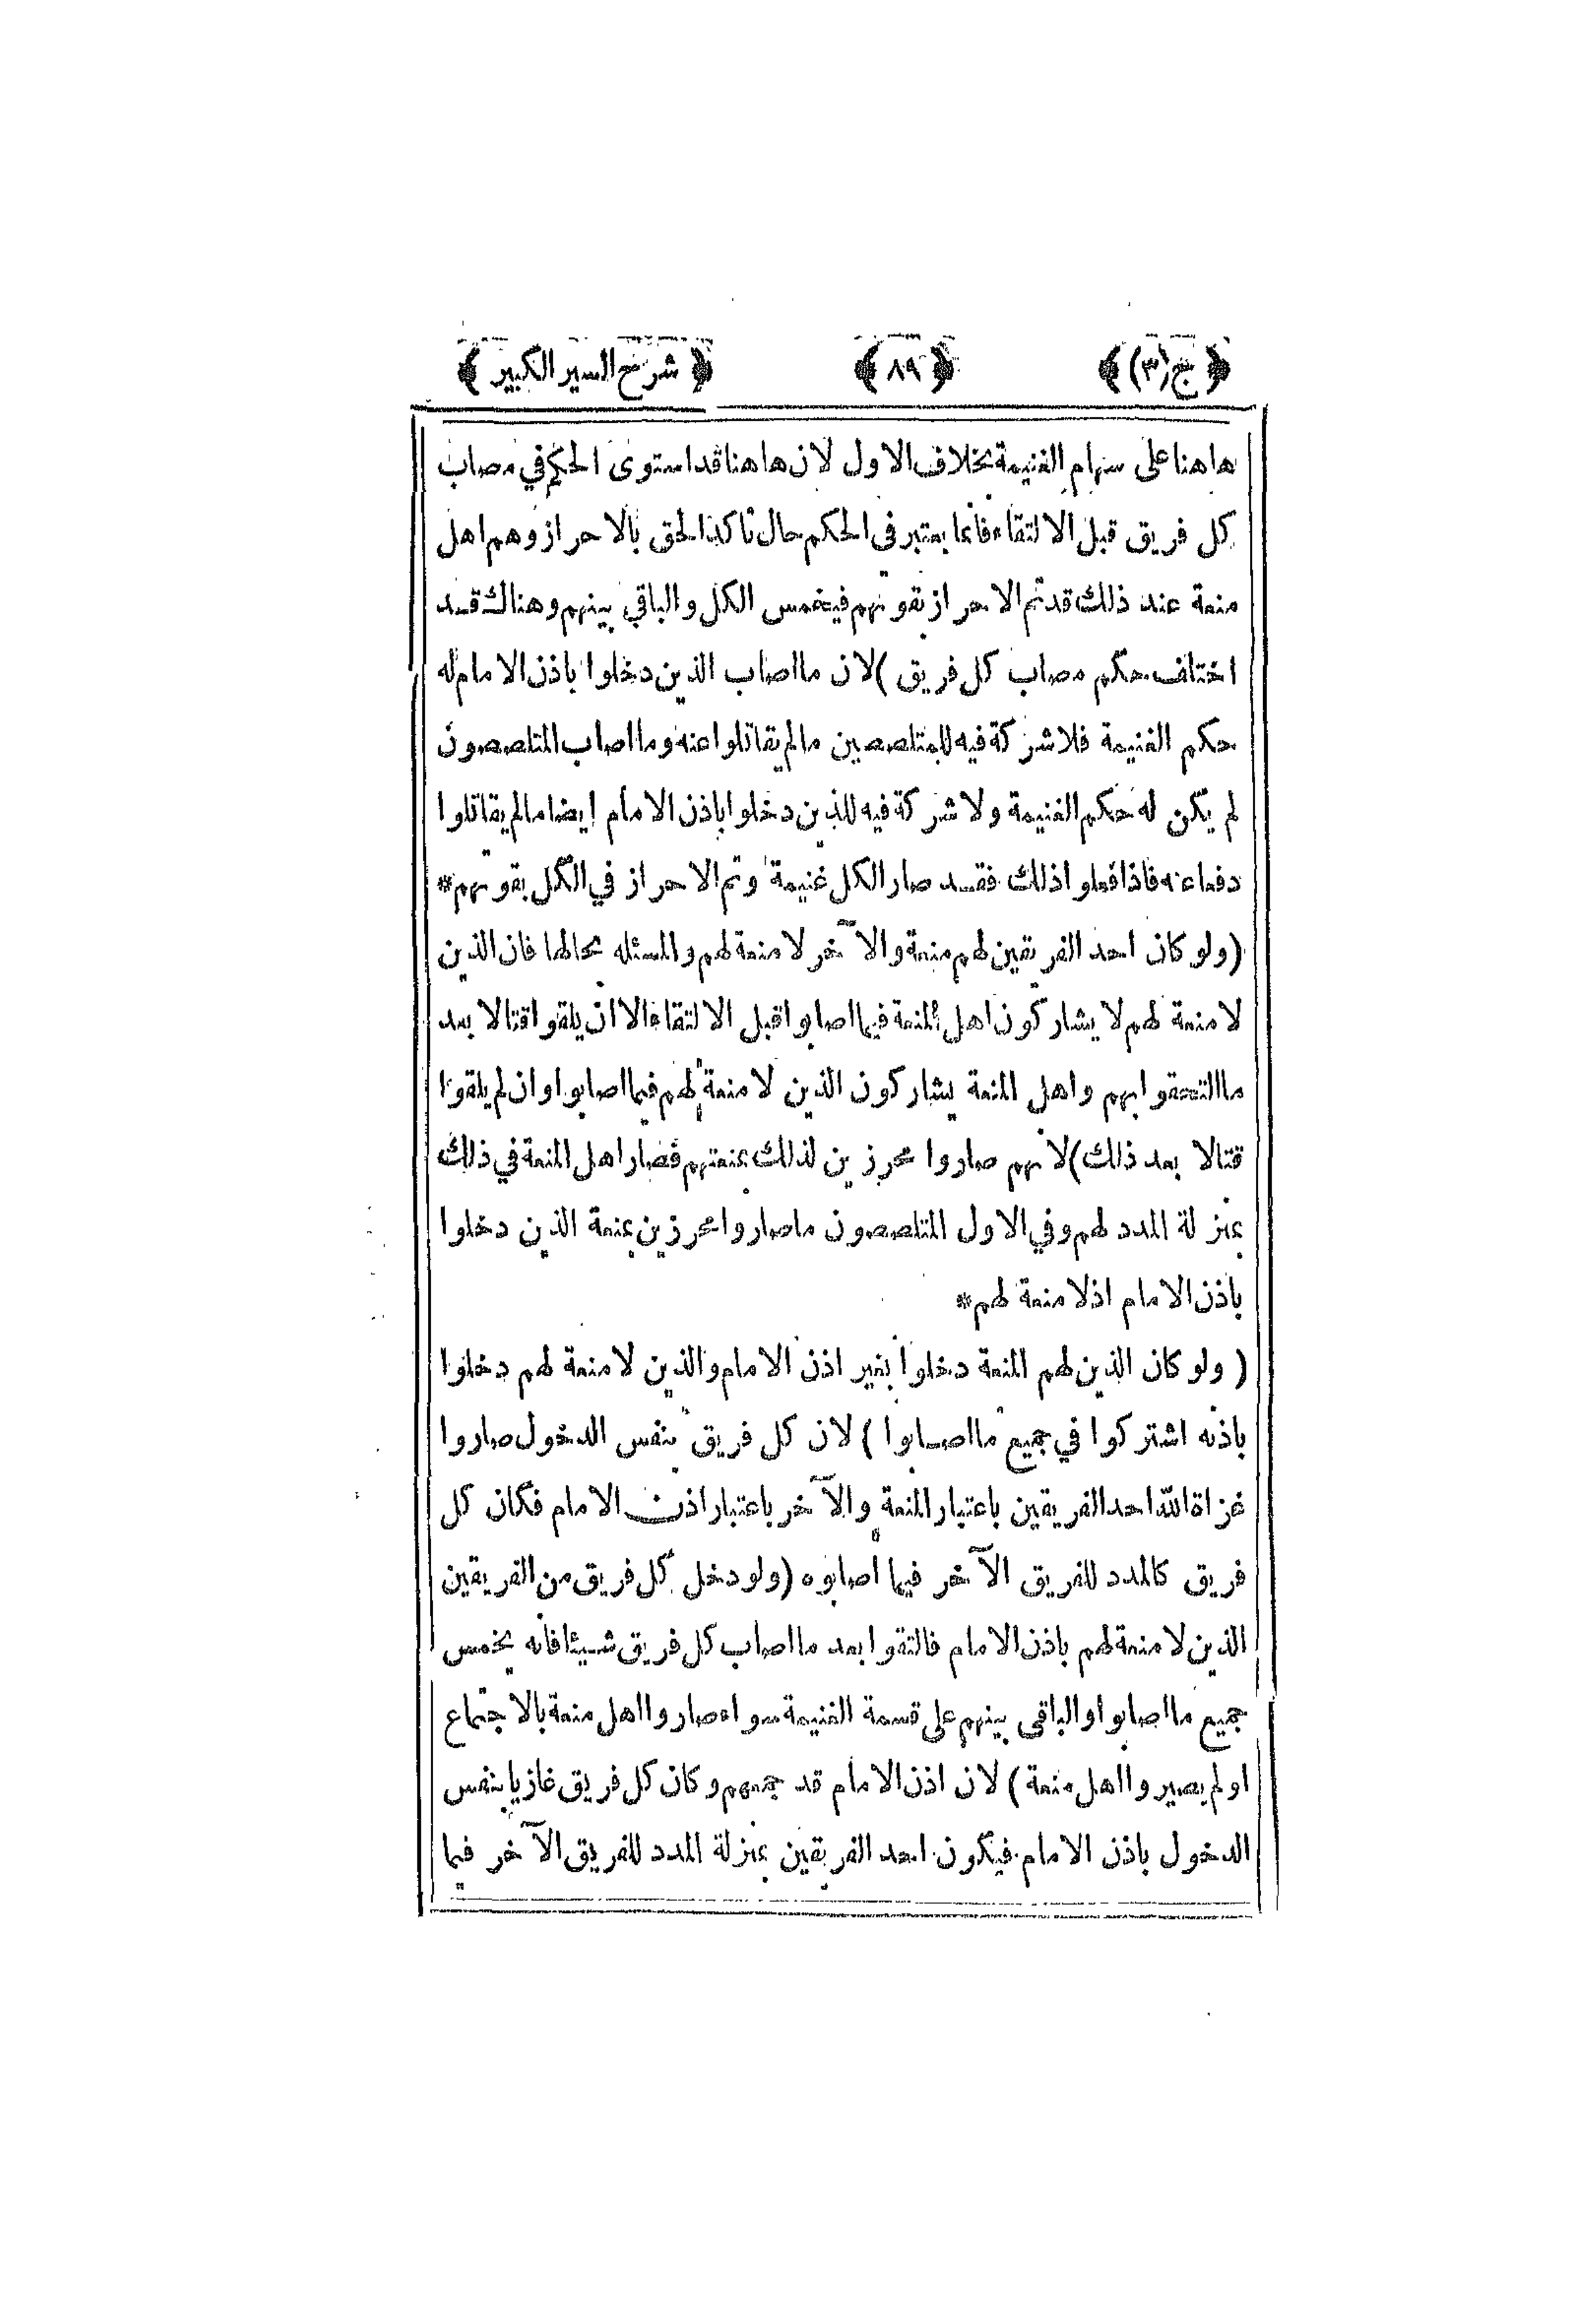 ﴿ ج(٣) ﴾ ﴿ ٨٩ ﴾ ﴿ شرح السير الكبير ﴾
هاهنا على سهام الغنيمة بخلاف الاول لان هاهنا قد استوى الحكم في مصاب
كل فريق قبل الالتقاء فانما يعتبر في الحكم حال تاكد الحق بالاحراز وهم اهل
منعة عند ذلك قد تم الاحراز بقوتهم فيخمس الكل والباقي بينهم وهناك قد
اختلف حكم مصاب كل فريق ) لان ما اصاب الذين دخلوا باذن الامام له
حكم الغنيمة فلا شركة فيه للمتلصصين ما لم يقاتلوا عنه وما اصاب المتلصصون
لم يكن له حكم الغنيمة ولا شركة فيه للذين دخلوا باذن الامام ايضا ما لم يقاتلوا
دفعا عنه فاذا فعلوا ذلك فقد صار الكل غنيمة وتم الاحراز في الكل بقوتهم *
( ولو كان احد الفريقين لهم منعة والآخر لا منعة لهم والمسئله بحالها فان الذين
لا منعة لهم لا يشاركون اهل المنعة فيما اصابوا قبل الالتقاء الا ان يلقوا قتالا بعد
ما التحقوا بهم واهل المنعة يشاركون الذين لا منعة لهم فيما اصابوا وان لم يلقوا
قتالا بعد ذلك ) لانهم صاروا محرزين لذلك بمنعتهم فصار اهل المنعة في ذلك
بمنزلة المدد لهم وفي الاول المتلصصون ما صاروا محرزين بمنعة الذين دخلوا
باذن الامام اذ لا منعة لهم *
( ولو كان الذين لهم المنعة دخلوا بغير اذن الامام والذين لا منعة لهم دخلوا
باذنه اشتركوا في جميع ما اصابوا ) لان كل فريق بنفس الدخول صاروا
غزاة الله احد الفريقين باعتبار المنعة والآخر باعتبار اذن الامام فكان كل
فريق كالمدد للفريق الآخر فيما اصابوه ( ولو دخل كل فريق من الفريقين
الذين لا منعة لهم باذن الامام فالتقوا بعد ما اصاب كل فريق شيئا فانه يخمس
جميع ما اصابوا والباقى بينهم على قسمة الغنيمة سواء صاروا اهل منعة بالاجتماع
او لم يصيروا اهل منعة ) لان اذن الامام قد جمعهم وكان كل فريق غازيا بنفس
الدخول باذن الامام فيكون احد الفريقين بمنزلة المدد للفريق الآخر فيما